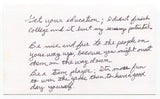 Get your education; I didn't finish
college and it hurt my earning potential
Be nice and fair to the people on
your way up, because you might meet
them on the way down.
Be a team player; It's more fun
to win the game than to have good
day yourself